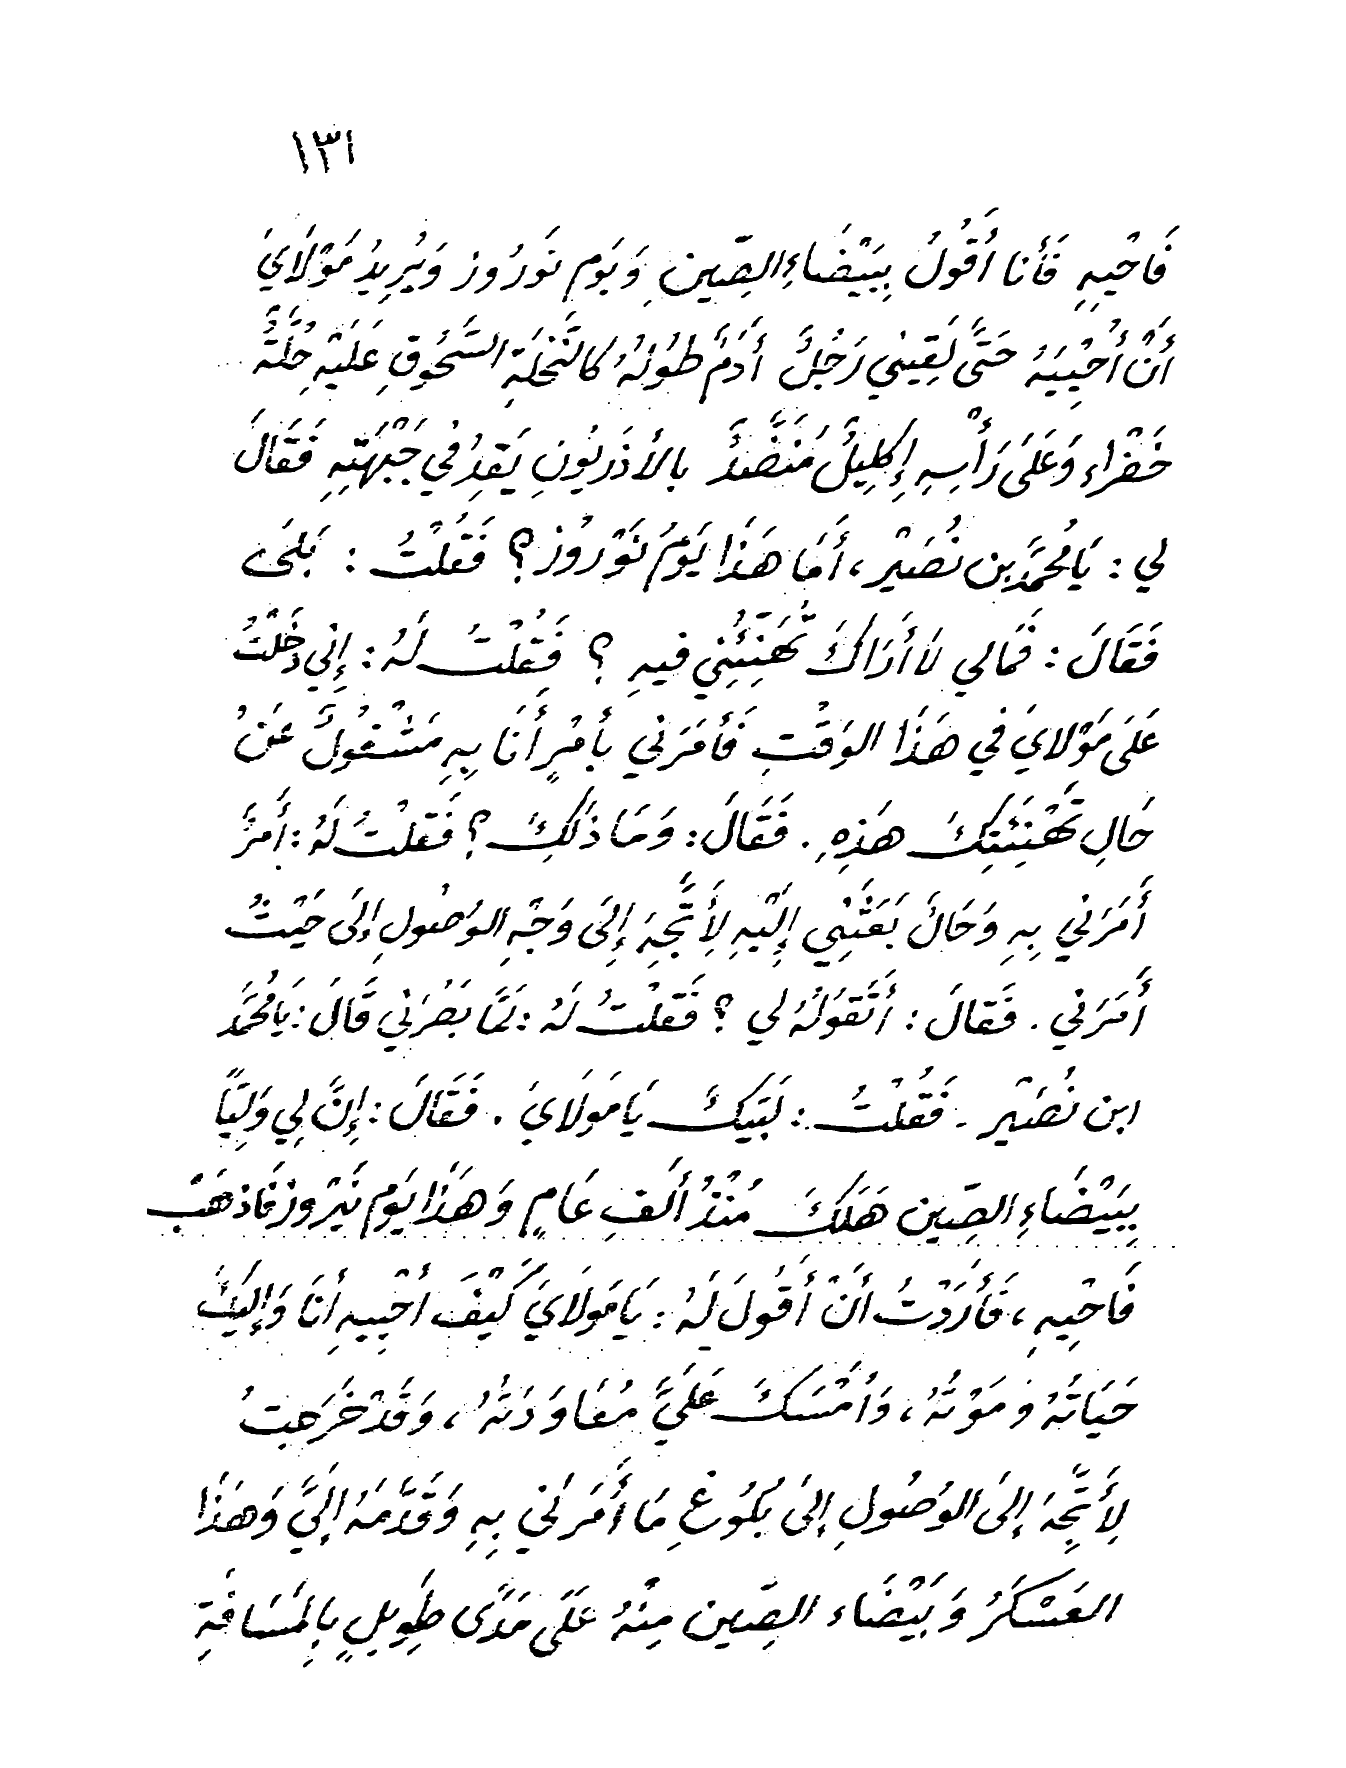 ١٣١
فَاحْيِهِ فَأَنا أَقُولُ بِبَيْضَاءِ الصِّينِ وَيَوم نَورُوز وَيُرِيدُ مَوْلَايَ
أَنْ أُحْيِيَهُ حَتَّى لَقِيَني رَجُلٌ أَدَمٌ طُولُهُ كالنَّخلَةِ السَّحُوقِ عَلَيْهِ حُلَّةٌ
خَضْرَاء وَعَلَى رَأْسِهِ إِكلِيلٌ مُنَضَّدٌ بالأذَريُونِ يَقِدُ في جَبْهَتِهِ فَقَالَ
لي : يَا مُحَمَّد بن نُصَيْر ، أَمَا هَذَا يَوْمُ نَوْرُوز ؟ فَقُلْتُ : بَلَى
فَقَالَ : فَمَالي لاَ أَرَاكَ تُهَنِّئُنِي فيهِ ؟ فَقُلْتُ لَهُ : إِنّي دَخَلْتُ
عَلَى مَوْلايَ في هَذَا الوَقْتِ فَأَمَرَني بأَمْرٍ أَنَا بِهِ مَشْغُولٌ عَنْ
حَالِ تَهْنِئَتِكَ هَذِهِ . فَقَالَ : وَمَا ذَلِكَ ؟ فَقلْتُ لَهُ : أَمرٌ
أَمَرَني بِهِ وَحَالٌ بَعَثَنِي إِلَيْهِ لِأَتَّجِهَ إِلَى وَجْهِ الوُصُولِ إِلَى حَيْثُ
أَمَرَني . فَقالَ : أَتَقُولُهُ لي ؟ فَقلْتُ لَهُ : لَمَّا بَصُرَني قَالَ : يَا مُحَمَّد
ابن نُصَيْر . فَقُلْتُ : لَبَّيكَ يَا مَولَايَ . فَقَالَ : إِنَّ لِي وَلِيّاً
بِبَيْضَاءِ الصِّين هَلَكَ مُنْذُ أَلفِ عَامٍ وَهَذَا يَوم نَيْرُوز فَاذهَبْ
فَاحْيِهِ ، فَأَرَدْتُ أَنْ أَقُولَ لَهُ : يَا مَولَايَ كَيْفَ أُحْيِيهِ أَنَا وَإِلَيْكَ
حَيَاتَهُ وَمَوْتَهُ ، وَأَمْسَكَ عَلَيَّ مُعَاوَدَتَهُ ، وَقَدْ خَرَجتُ
لِأَتَّجِهَ إِلَى الوُصُولِ إِلَى بُلُوغِ مَا أَمَرَني بِهِ وَقَدَّمَهُ إِلَيَّ وَهَذَا
العَسْكَرُ وَبَيْضَاء الصِّين مِنْهُ عَلَى مَدًى طَوِيلٍ بِالمَسَافَةِ